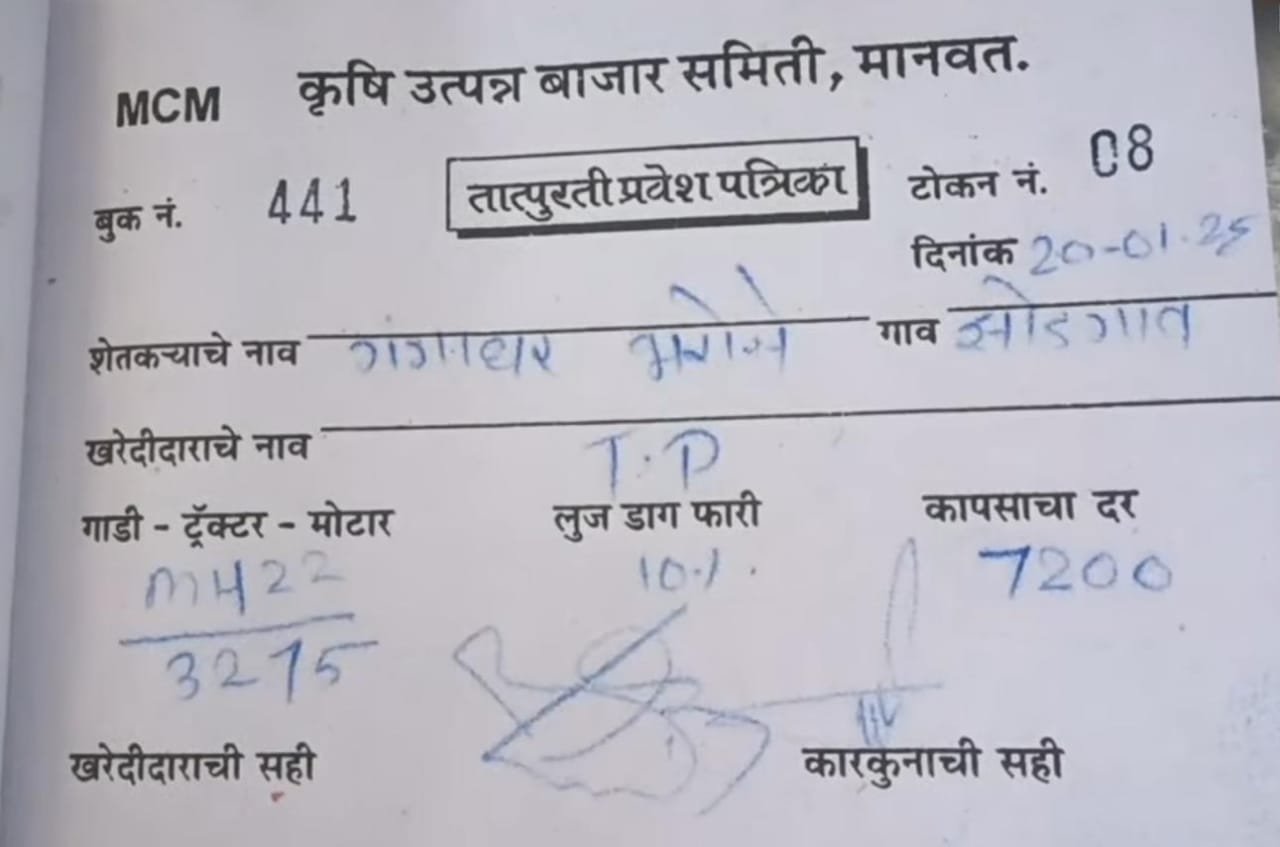 MCM कृषि उत्पन्न बाजार समिती, मानवत.
बुक नं. 441 तात्पुरती प्रवेश पत्रिका टोकन नं. 08
दिनांक 20-01.25
शेतकऱ्याचे नाव गंगाधर गाव
खरेदीदाराचे नाव T.P
गाडी - ट्रॅक्टर - मोटार लुज डाग फारी कापसाचा दर
MH22 10.1. 7200
3275
खरेदीदाराची सही कारकुनाची सही